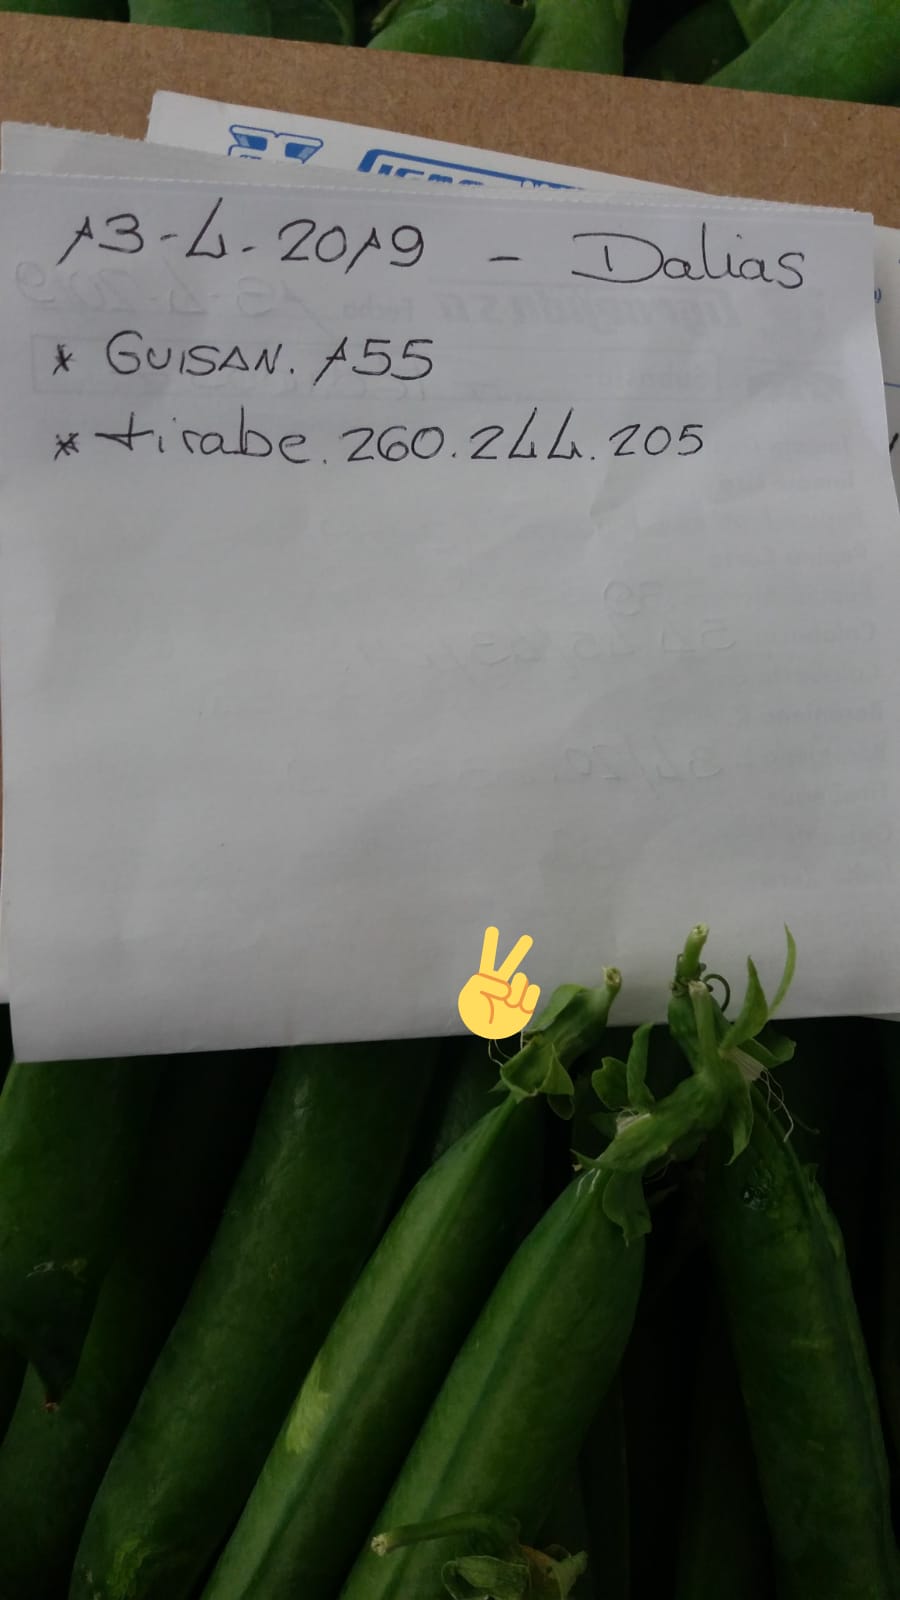 13-4-2019 - Dalias
* GUISAN. 155
* tirabe. 260.244.205